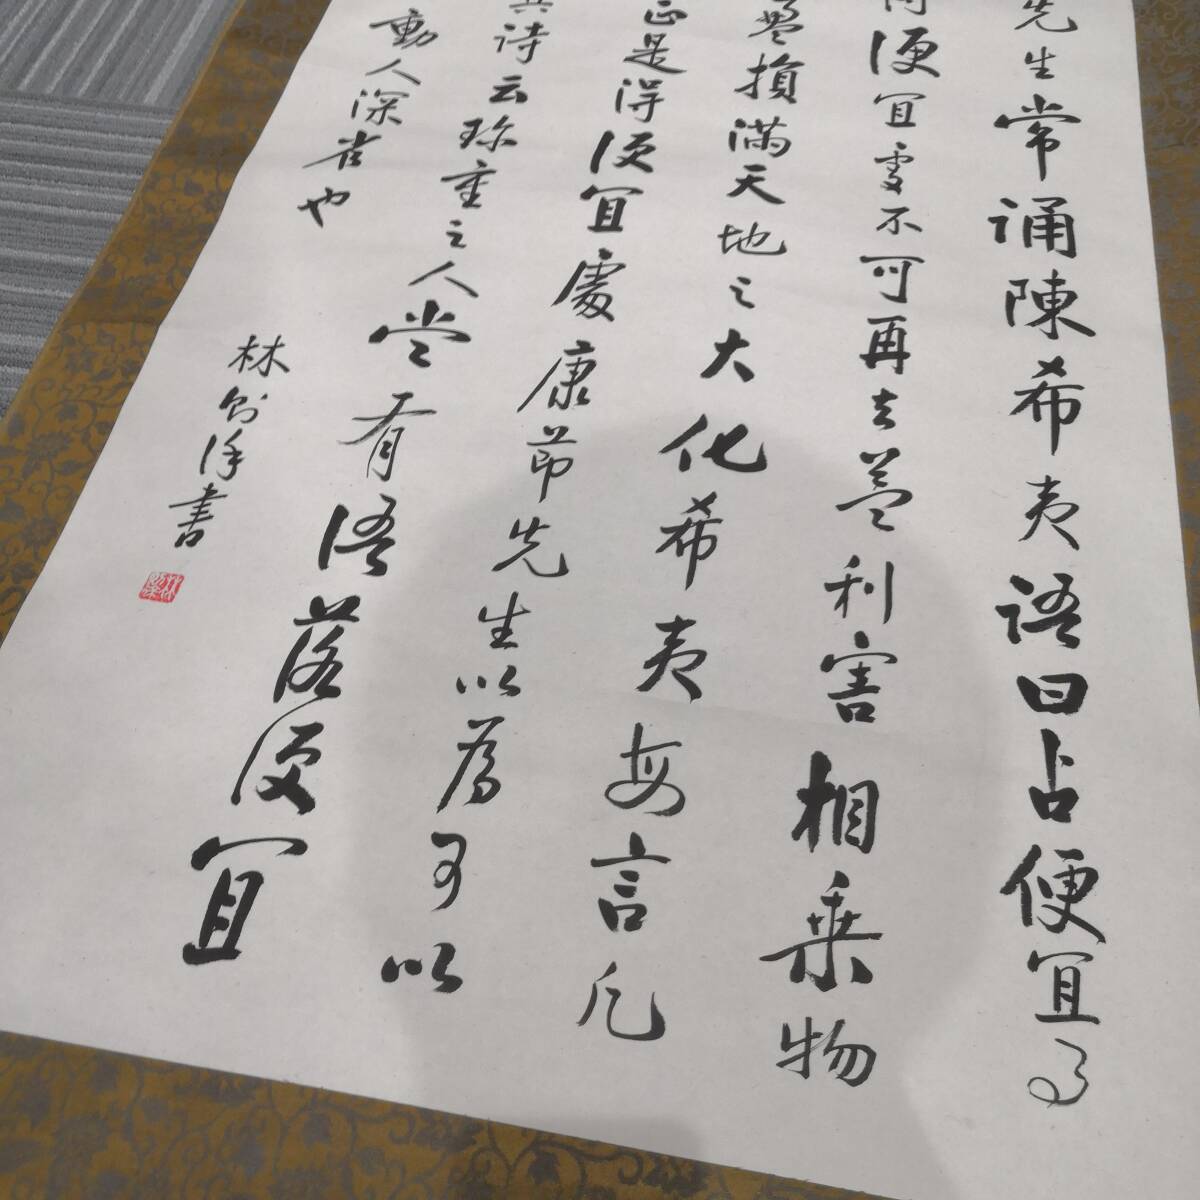 先生常誦陳希夷語曰占便宜
便宜處不可再去蓋利害相乘物
盈損滿天地之大化希夷每言凡
正是得便宜處康節先生以為可以
其詩云珍重之人嘗有語落便宜
動人深省也
林則徐書